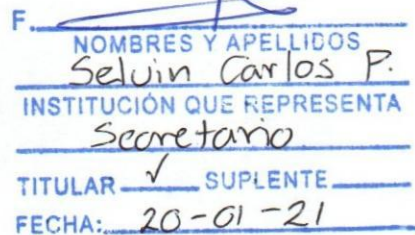 F.
NOMBRES Y APELLIDOS
Selvin Carlos P.
INSTITUCIÓN QUE REPRESENTA
Secretario
TITULAR √ SUPLENTE
FECHA: 20-01-21